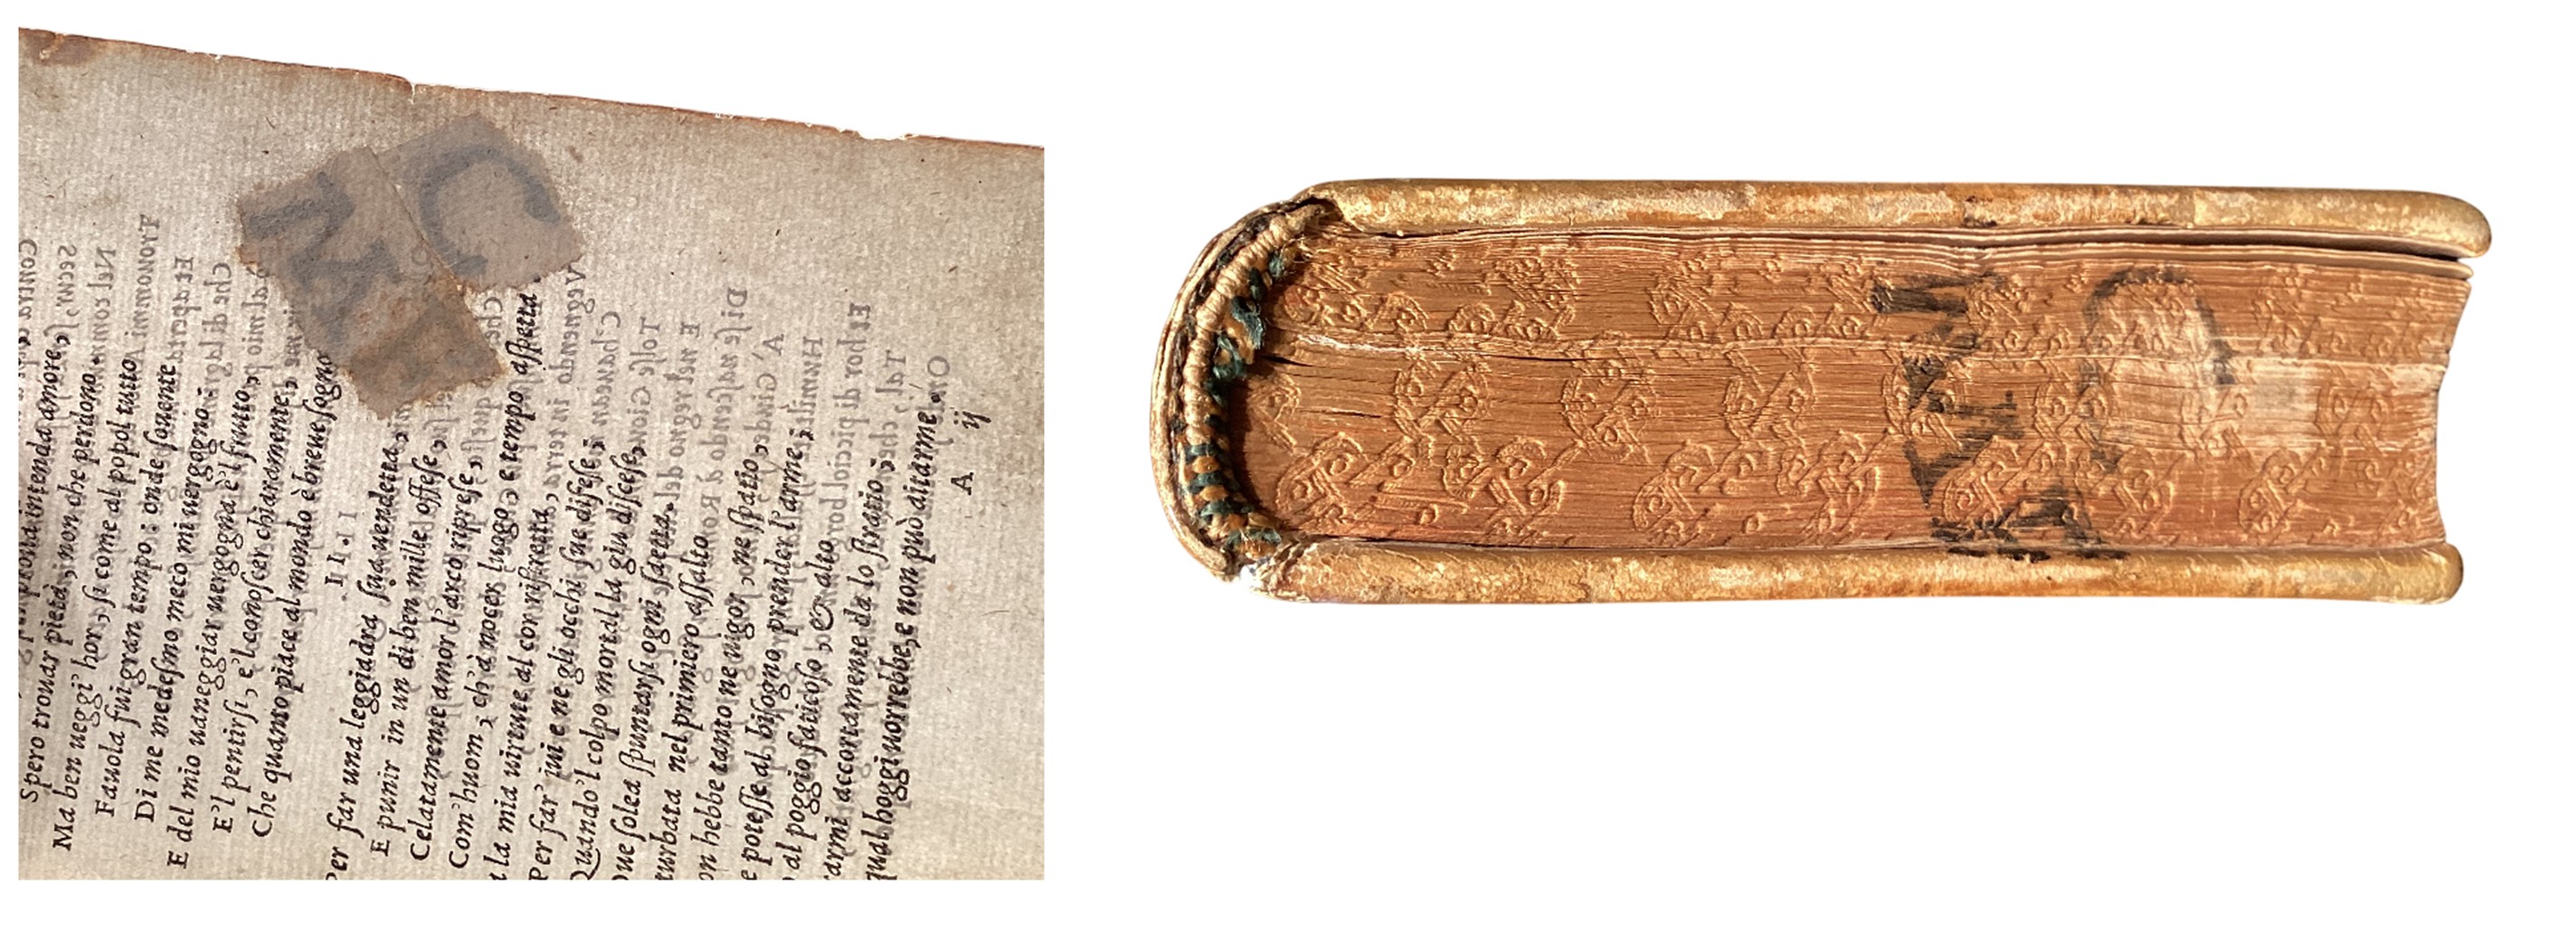 pruoua intenda amore,
Spero trouar pietà, non che perdono.
Ma ben ueggi' hor, si come al popol tutto
Fauola fui gran tempo: onde souente
Di me medesmo meco mi uergogno.
E del mio uaneggiar uergogna è'l frutto,
E'l pentirsi, e'l conoscer chiaramente,
Che quanto piace al mondo è breue sogno
I I.
Per far una leggiadra sua uendetta,
E punir in un di ben mille offese,
Celatamente amor l'arco riprese,
Com'huom, ch'à nocer luogo, e tempo aspetta.
la mia uirtute al cor ristretta,
Per far' iui e ne gli occhi sue difese;
Quando'l colpo mortal la giu discese,
Oue solea spuntarsi ogni saetta.
turbata nel primiero assalto
on hebbe tanto ne uigor, ne spatio,
e potesse al bisogno prender l'arme;
al poggio faticoso, & alto
rarmi accortamente da lo stratio;
qual hoggi uorrebbe, e non può aitarme.
A ij
C